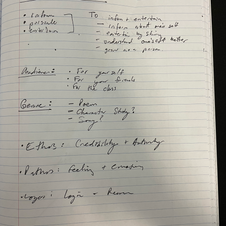 • Inform
• persuade
• entertain
To
- inform + entertain
- inform about one self
- entertain by story
- understand
- grow as a person
Audience:
• For yourself
• For your friends
• For the class
Genre:
- Poem
- Character Study?
- Song?
• Ethos: Credibility + Authority
• Pathos: Feeling + emotion
• Logos: Logic + Reason